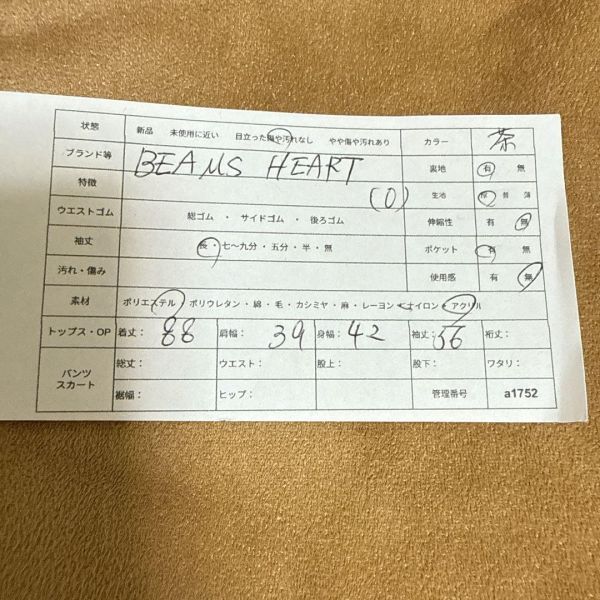 状態 新品 未使用に近い 目立った傷や汚れなし やや傷や汚れあり カラー 茶
ブランド等 BEAMS HEART 裏地 有 無
特徴 (0) 生地 厚 普 薄
ウエストゴム 総ゴム ・ サイドゴム ・ 後ろゴム 伸縮性 有 無
袖丈 長 ・ 七〜九分 ・ 五分 ・ 半 ・ 無 ポケット 有 無
汚れ・傷み 使用感 有 無
素材 ポリエステル ・ ポリウレタン ・ 綿 ・ 毛 ・ カシミヤ ・ 麻 ・ レーヨン ・ ナイロン ・ アクリル
トップス・OP 着丈: 88 肩幅: 39 身幅: 42 袖丈: 56 裄丈:
パンツ スカート 総丈: ウエスト: 股上: 股下: ワタリ:
裾幅: ヒップ: 管理番号 a1752